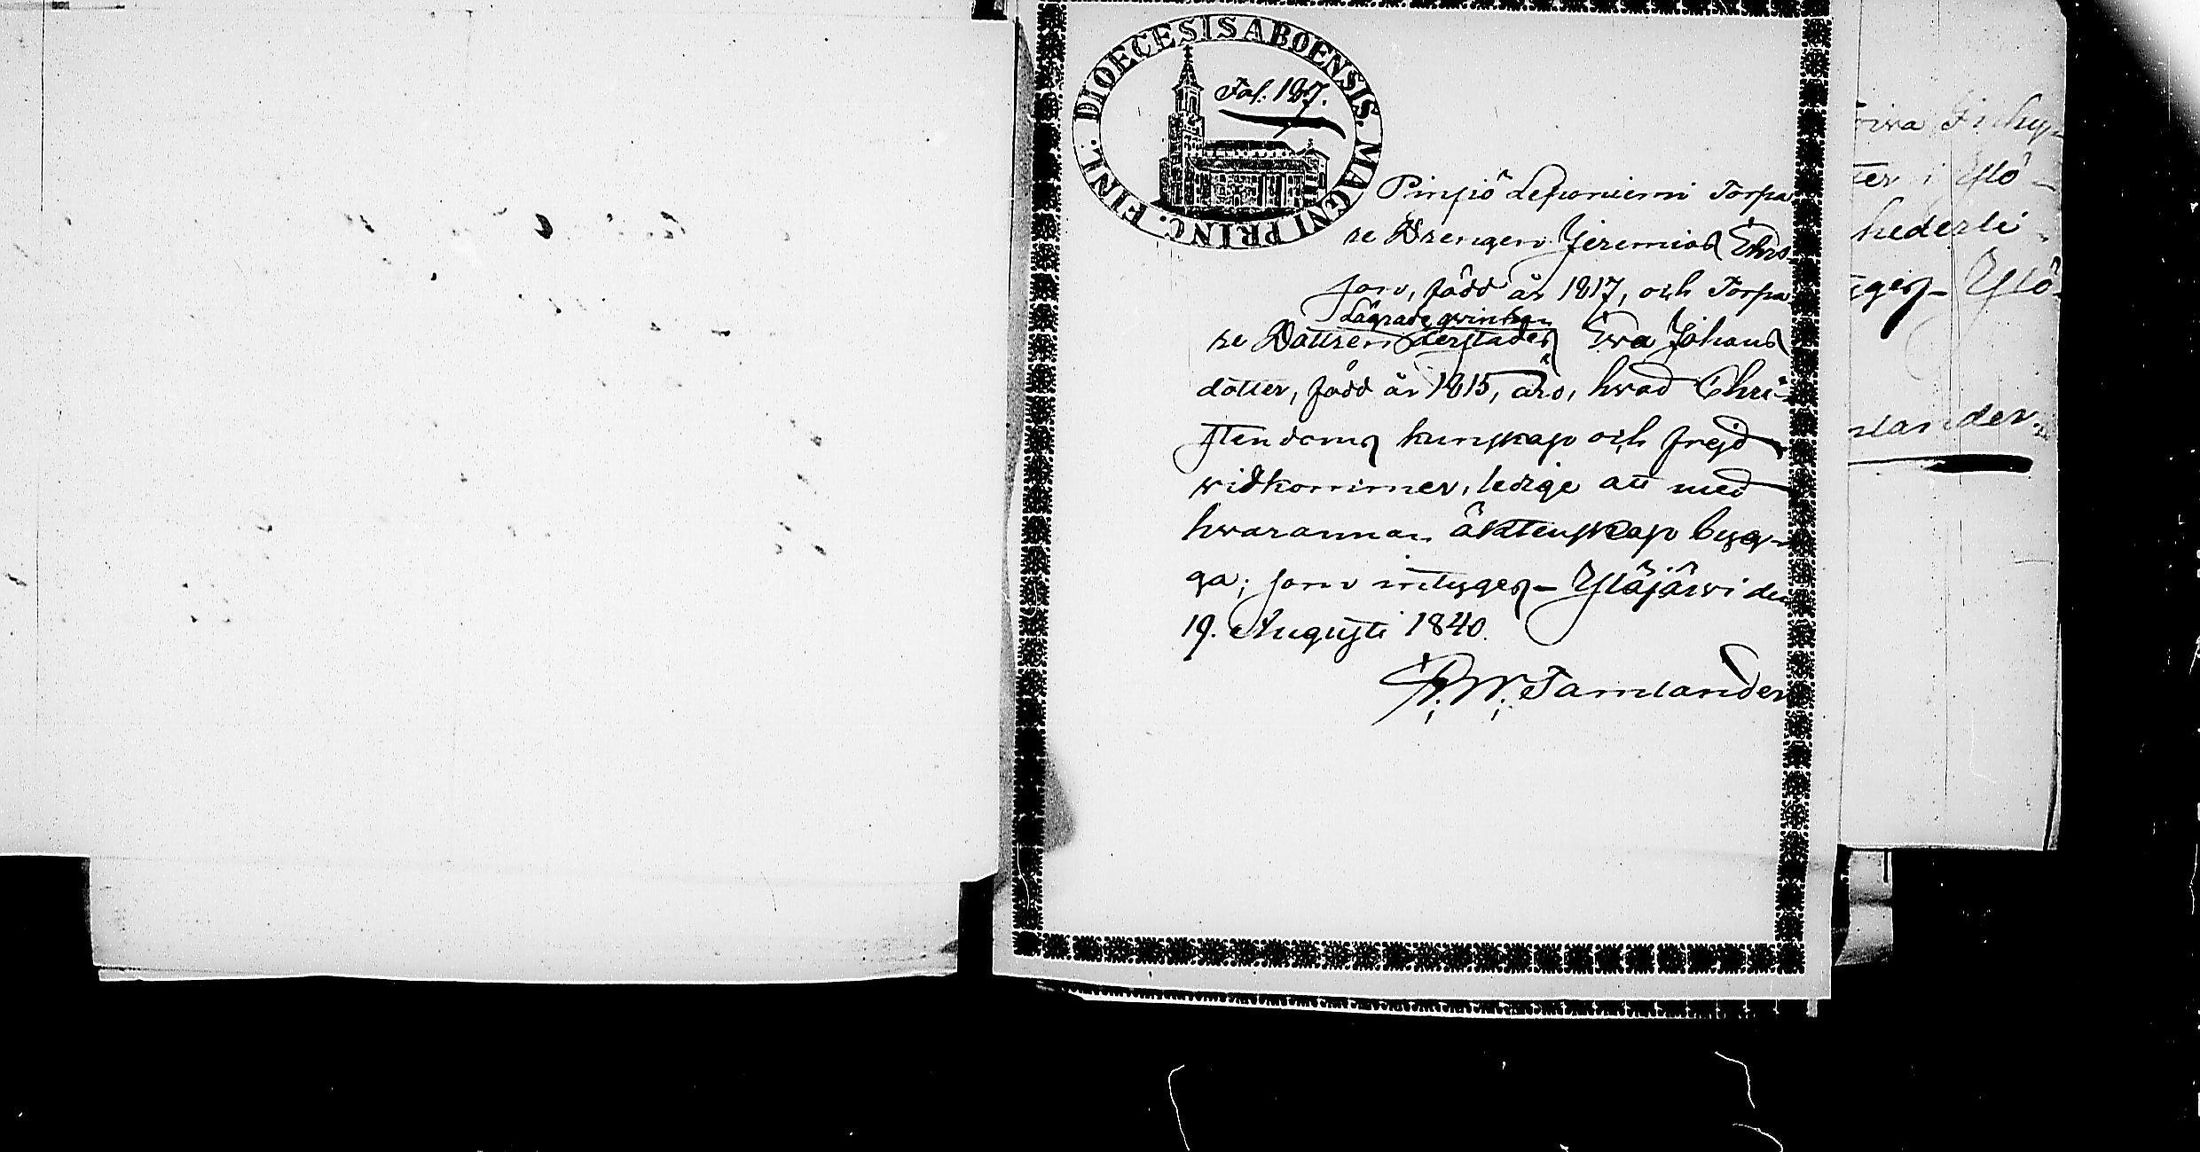 DIOECESIS ABOENSIS. MAGNI PRINC. FINL.
Fol. 187.
Pinsiö Leponiemi Torpa-
re Drengen Jeremias Ehrs-
son, född år 1817, och Torpa-
Lägrade qvinkan
re Dottren Ewa Johans
dotter, född år 1815, äro, hwad Chri-
stendoms kunskap och frejd
widkommer, ledige att med
hwarannan äktenskap byg-
ga; som intyges - Ylöjärwi den
19. Augusti 1840.
W. Tamlander
ter i Ylö-
hederli-
Ylö-
lander